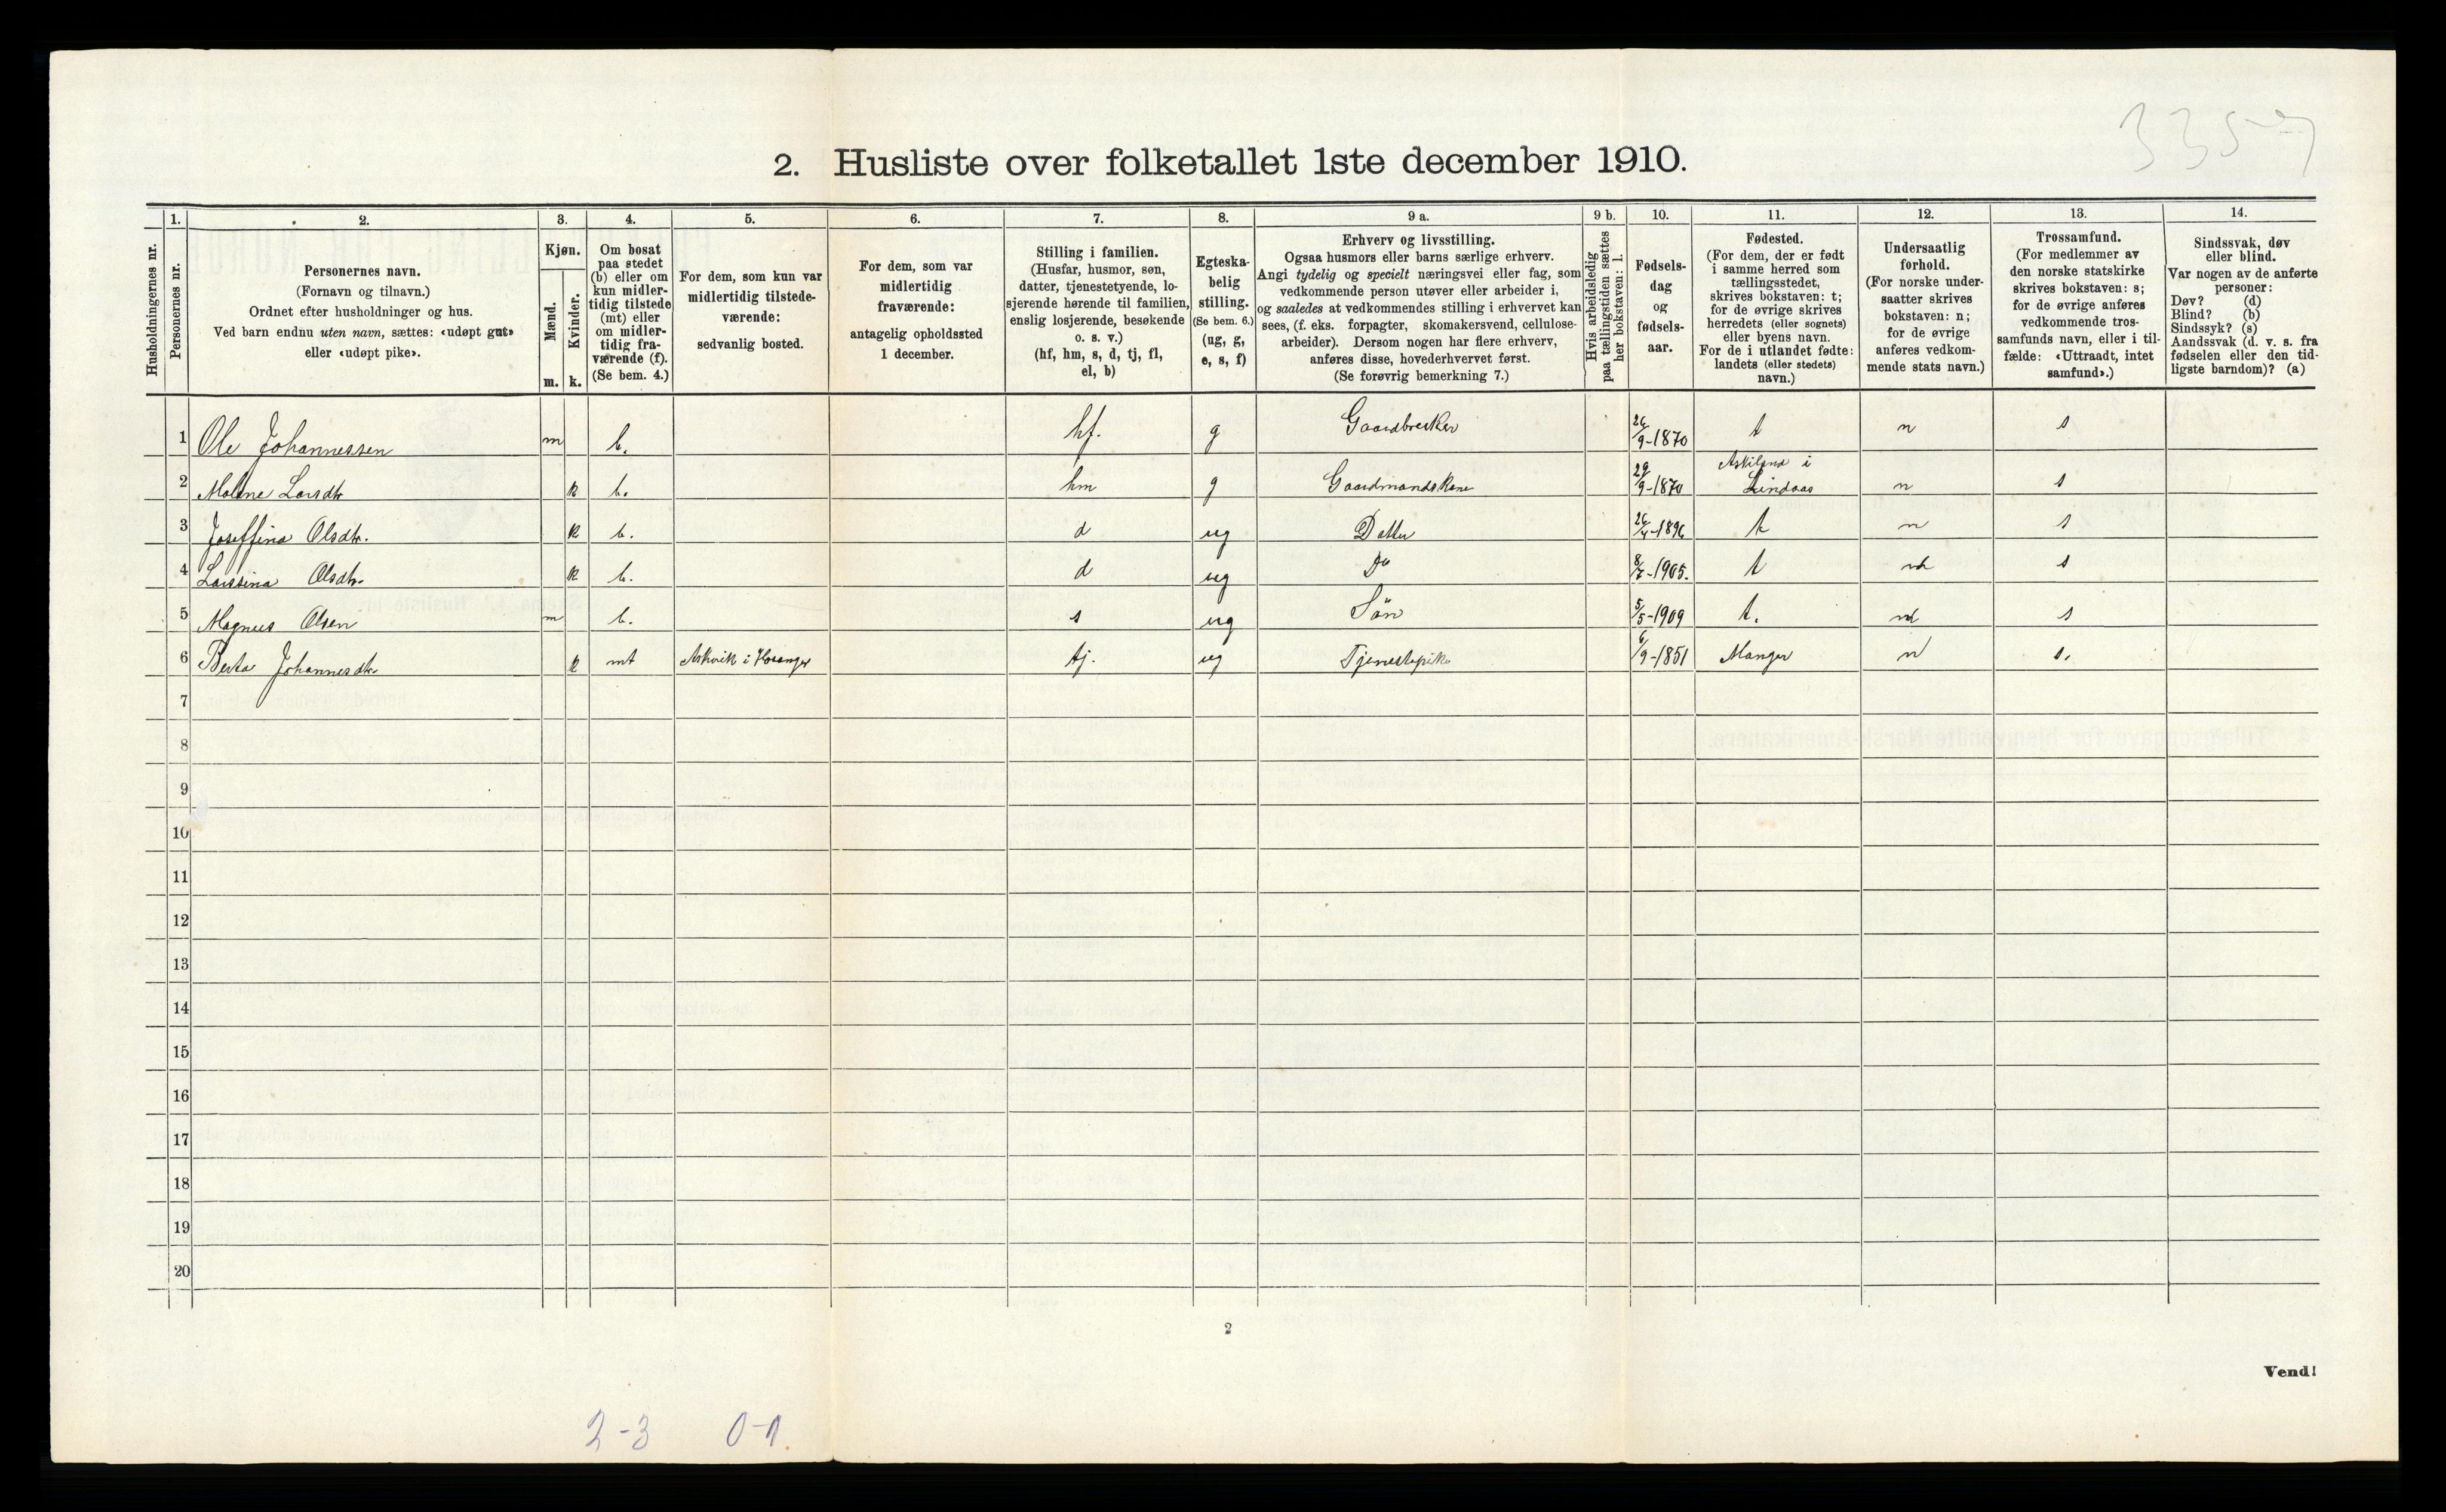 3357
2. Husliste over folketallet 1ste december 1910.
Husholdningernes nr.
1. Personernes nr.
2. Personernes navn.
(Fornavn og tilnavn.)
Ordnet efter husholdninger og hus.
Ved barn endnu uten navn, sættes: «udøpt gut»
eller «udøpt pike».
3. Kjøn.
Mænd. m.
Kvinder. k.
4. Om bosat
paa stedet
(b) eller om
kun midler-
tidig tilstede
(mt) eller
om midler-
tidig fra-
værende (f).
(Se bem. 4.)
5. For dem, som kun var
midlertidig tilstede-
værende:
sedvanlig bosted.
6. For dem, som var
midlertidig
fraværende:
antagelig opholdssted
1 december.
7. Stilling i familien.
(Husfar, husmor, søn,
datter, tjenestetyende, lo-
sjerende hørende til familien,
enslig losjerende, besøkende
o. s. v.)
(hf, hm, s, d, tj, fl,
el, b)
8. Egteska-
belig
stilling.
(Se bem. 6.)
(ug, g,
e, s, f)
9 a. Erhverv og livsstilling.
Ogsaa husmors eller barns særlige erhverv.
Angi tydelig og specielt næringsvei eller fag, som
vedkommende person utøver eller arbeider i,
og saaledes at vedkommendes stilling i erhvervet kan
sees, (f. eks. forpagter, skomakersvend, cellulose-
arbeider). Dersom nogen har flere erhverv,
anføres disse, hovederhvervet først.
(Se forøvrig bemerkning 7.)
9 b. Hvis arbeidsledig
paa tællingstiden sættes
her bokstaven: l.
10. Fødsels-
dag
og
fødsels-
aar.
11. Fødested.
(For dem, der er født
i samme herred som
tællingsstedet,
skrives bokstaven: t;
for de øvrige skrives
herredets (eller sognets)
eller byens navn.
For de i utlandet fødte:
landets (eller stedets)
navn.)
12. Undersaatlig
forhold.
(For norske under-
saatter skrives
bokstaven: n;
for de øvrige
anføres vedkom-
mende stats navn.)
13. Trossamfund.
(For medlemmer av
den norske statskirke
skrives bokstaven: s;
for de øvrige anføres
vedkommende tros-
samfunds navn, eller i til-
fælde: «Uttraadt, intet
samfund».)
14. Sindssvak, døv
eller blind.
Var nogen av de anførte
personer:
Døv? (d)
Blind? (b)
Sindssyk? (s)
Aandssvak (d. v. s. fra
fødselen eller den tid-
ligste barndom)? (a)
1 Ole Johannessen m b. hf. g Gaardbruker 9-1870 t n s
2 Malene Larsdtr k b. hm g Gaardmandskone 29/9-1870 Askiland i Lindaas n s
3 Joseffina Olsdtr. k b. d ug Datter 26/4-1896 t n s
4 Larsina Olsdtr. k b. d ug Do 8/7-1905. t n s
5 Magnus Olsen m b. s ug Sön 5/5-1909 t. n s
6 Berta Johannesdtr k mt Askvik i Hosanger tj. ug Tjenestepike 6/9-1851 Manger n s.
7
8
9
10
11
12
13
14
15
16
17
18
19
20
2
Vend!
2-3 0-1.